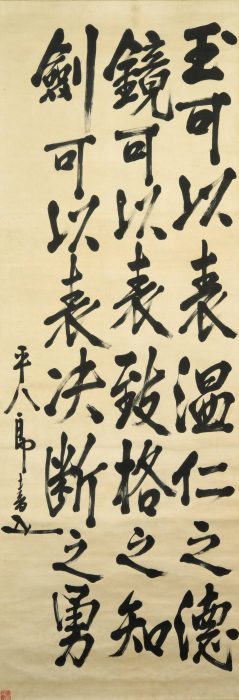 玉可以表温仁之德
鏡可以表致格之知
劍可以表决断之勇
平八郎書